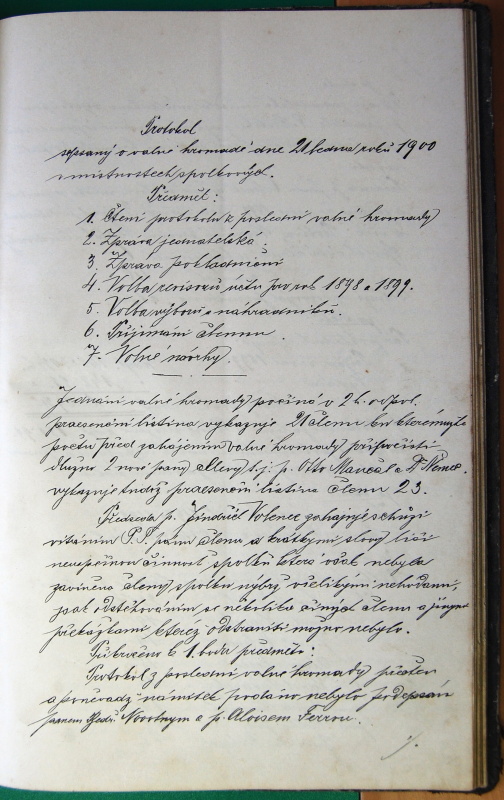 Protokol
sepsaný o valné hromadě dne 21 ledna roku 1900
v místnostech spolkových.
Předmět:
1. Čtení protokolu z poslední valné hromady
2. Zpráva jednatelská.
3. Zpráva pokladniční
4. Volba revisorů účtů pro rok 1898 a 1899.
5. Volba výboru a náhradníků.
6. Přijímání členů
7. Volné návrhy.
Jednání valné hromady počíná v 2 h. odpol.
praesenční listina vykazuje 21 členů ku kterémužto
počtu před zahájením valné hromady připočísti
dlužno 2 nové pány členy t.j. p. Otto a Dr Němec
vykazuje tudíž praesenční listina členů 23.
Předseda p. Jindřich Volenec zahajuje schůzi
vítáním P.T. pánů členů a krátkými slovy líčí
neúspěšnou činnost spolku která však nebyla
zaviněna členy spolku nýbrž všelikými nehodami,
jak odstěhováním se několika činných členů a jinými
překážkami kteréž odstraniti možno nebylo.
Přikročeno k 1. bodu předmětů:
Protokol z poslední valné hromady přečten
a poněvadž námitek podáno nebylo podepsán
panem Bedř. Novotným a p. Aloisem Ferrou.